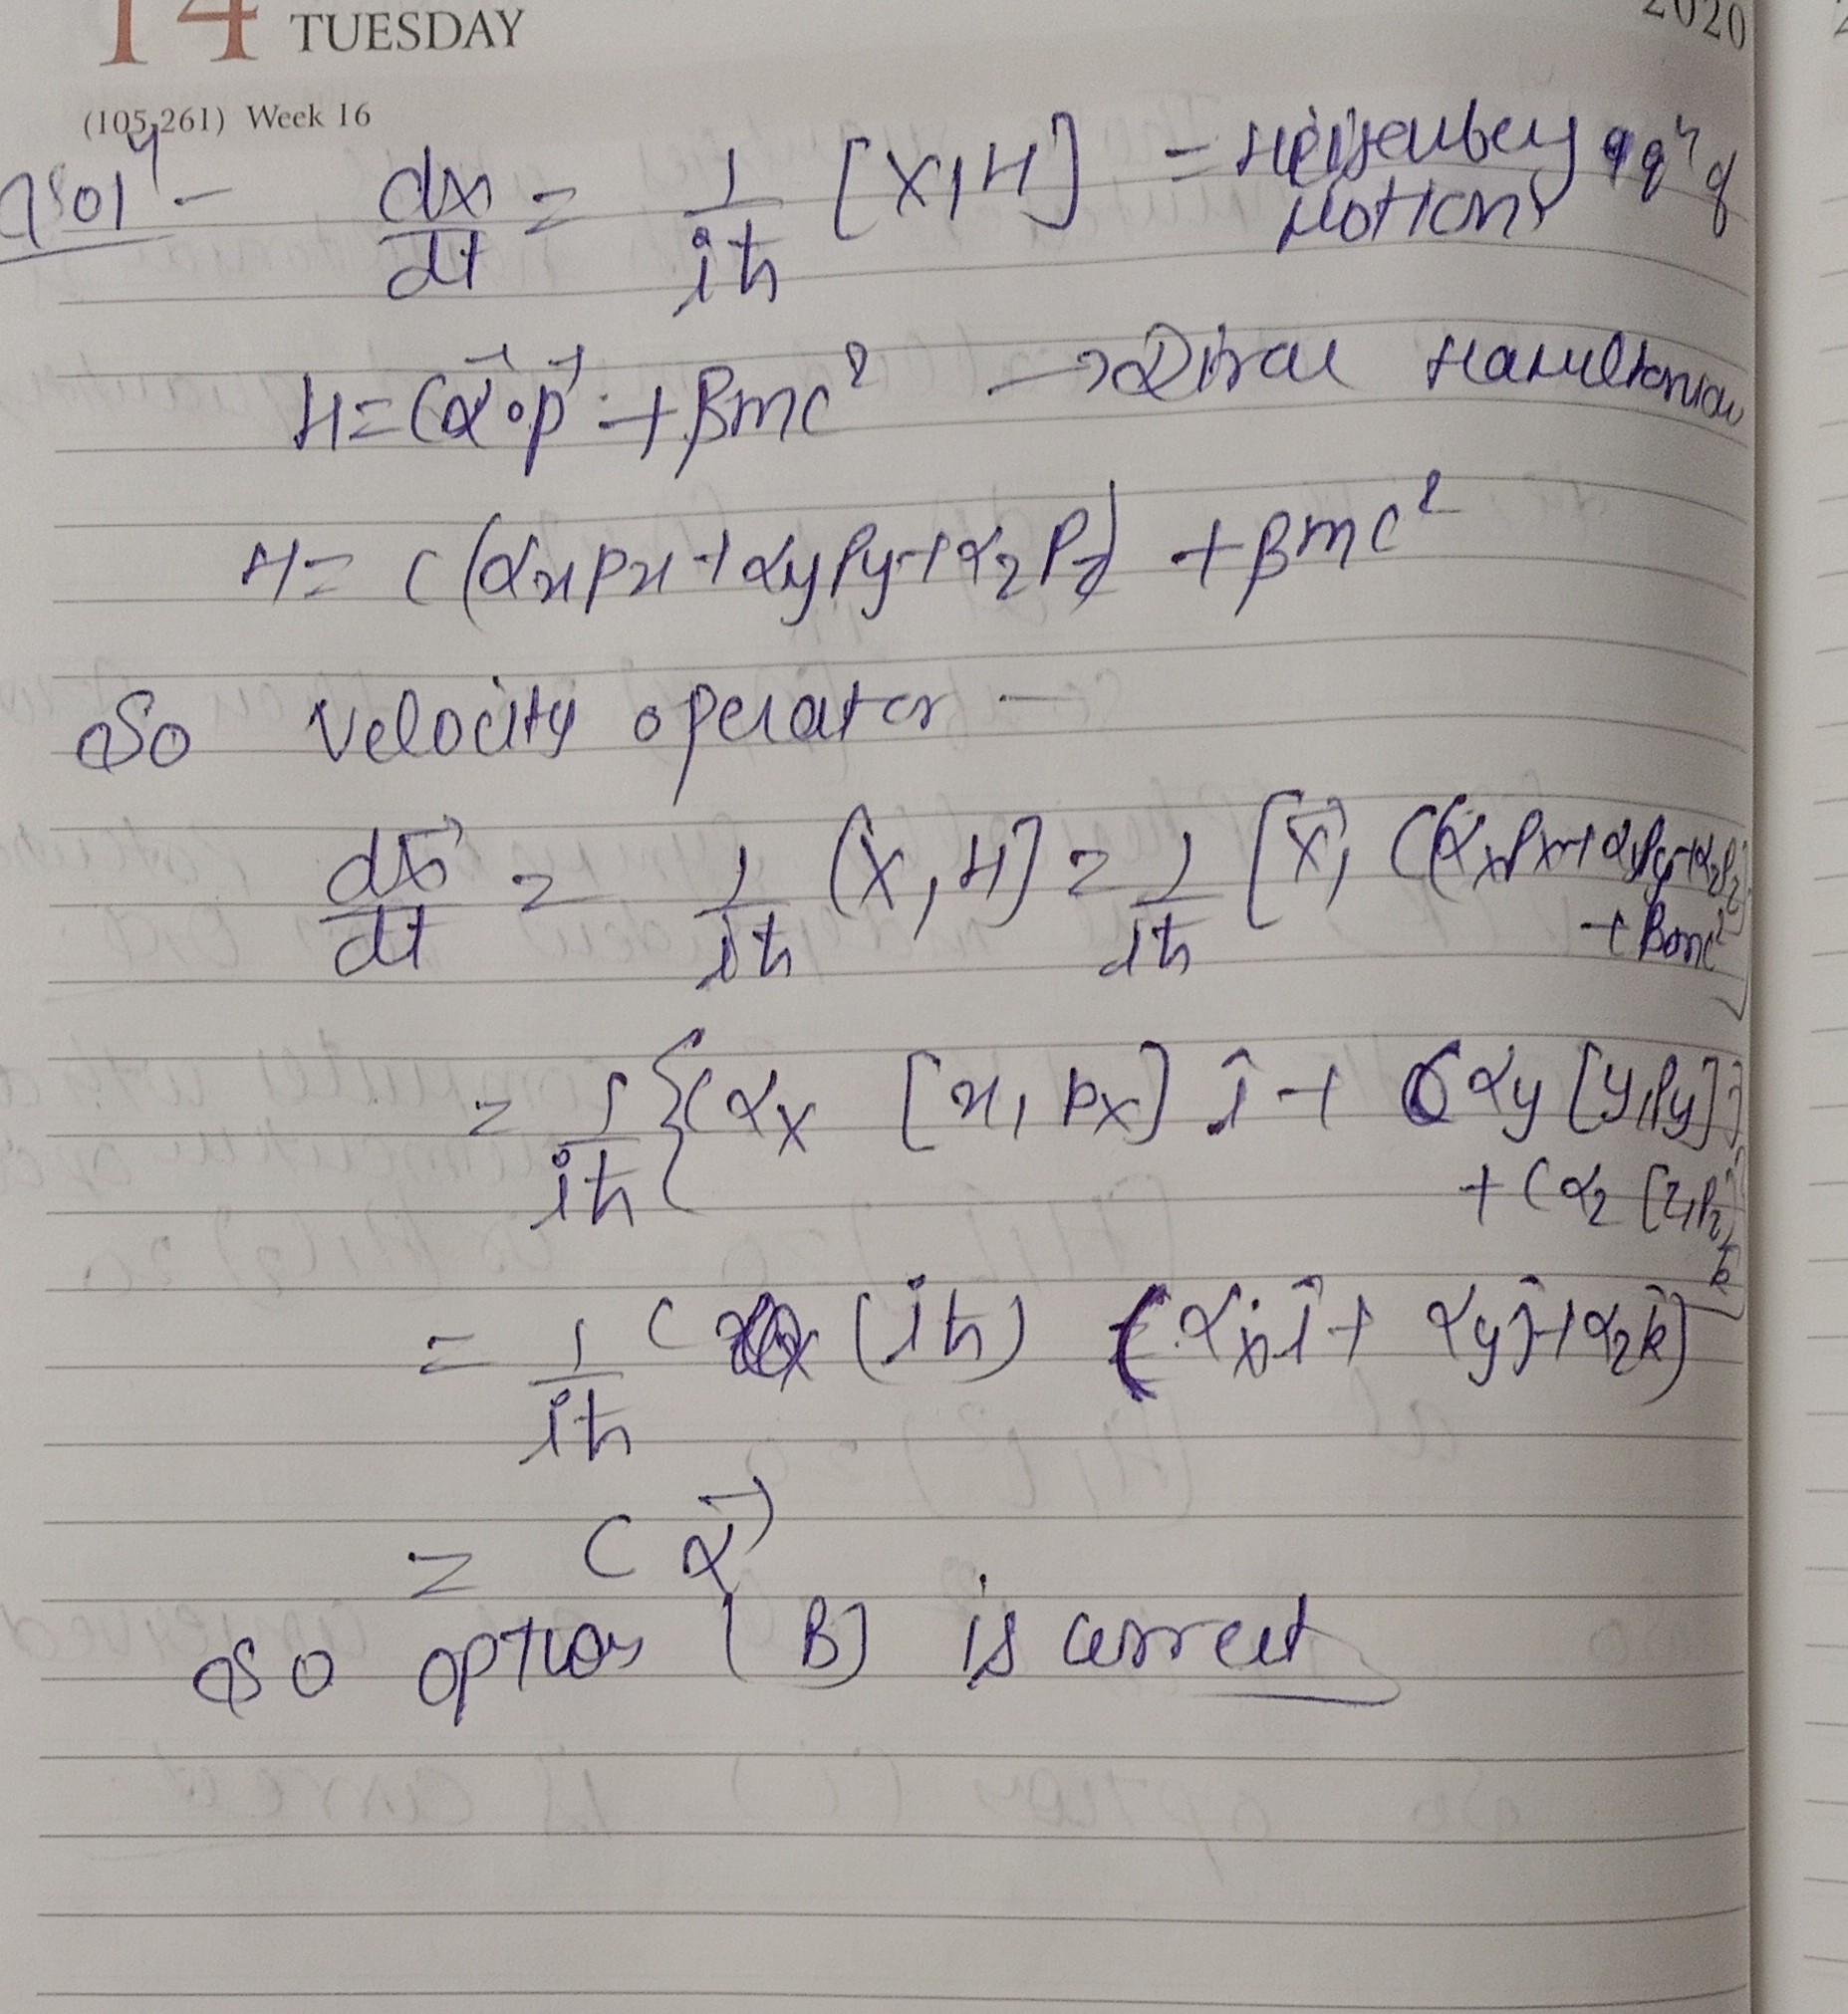 14 TUESDAY
2020
(105,261) Week 16
solⁿ - dx/dt = 1/iħ [X, H] = Heisenberg eqⁿ of
Motion
H = c α⃗·p⃗ + βmc² → Dirac Hamiltonian
H = c (αx px + αy Py + αz Pz) + βmc²
So velocity operator -
dx⃗/dt = 1/iħ [X, H] = 1/iħ [x⃗, c(αx Px + αy Py + αz Pz)
+ βmc²]
= 1/iħ { c αx [x, px] î + c αy [y, Py] ĵ
+ c αz [z, Pz]
k̂
= 1/iħ c (iħ) (αx î + αy ĵ + αz k̂)
= c α⃗
So option (B) is correct